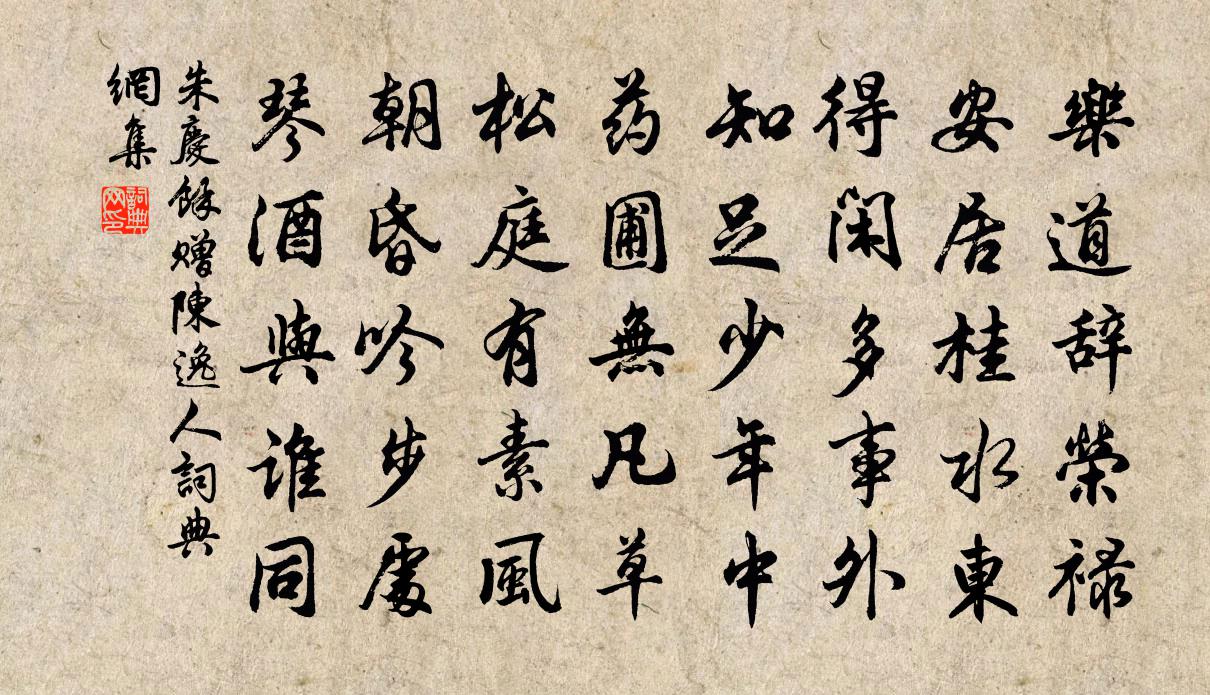 樂道辞榮禄
安居桂水東
得閑多事外
知足少年中
药圃無凡草
松庭有素風
朝昏吟步處
琴酒與誰同
朱慶餘赠陳逸人詞典
網集
詞典
网印